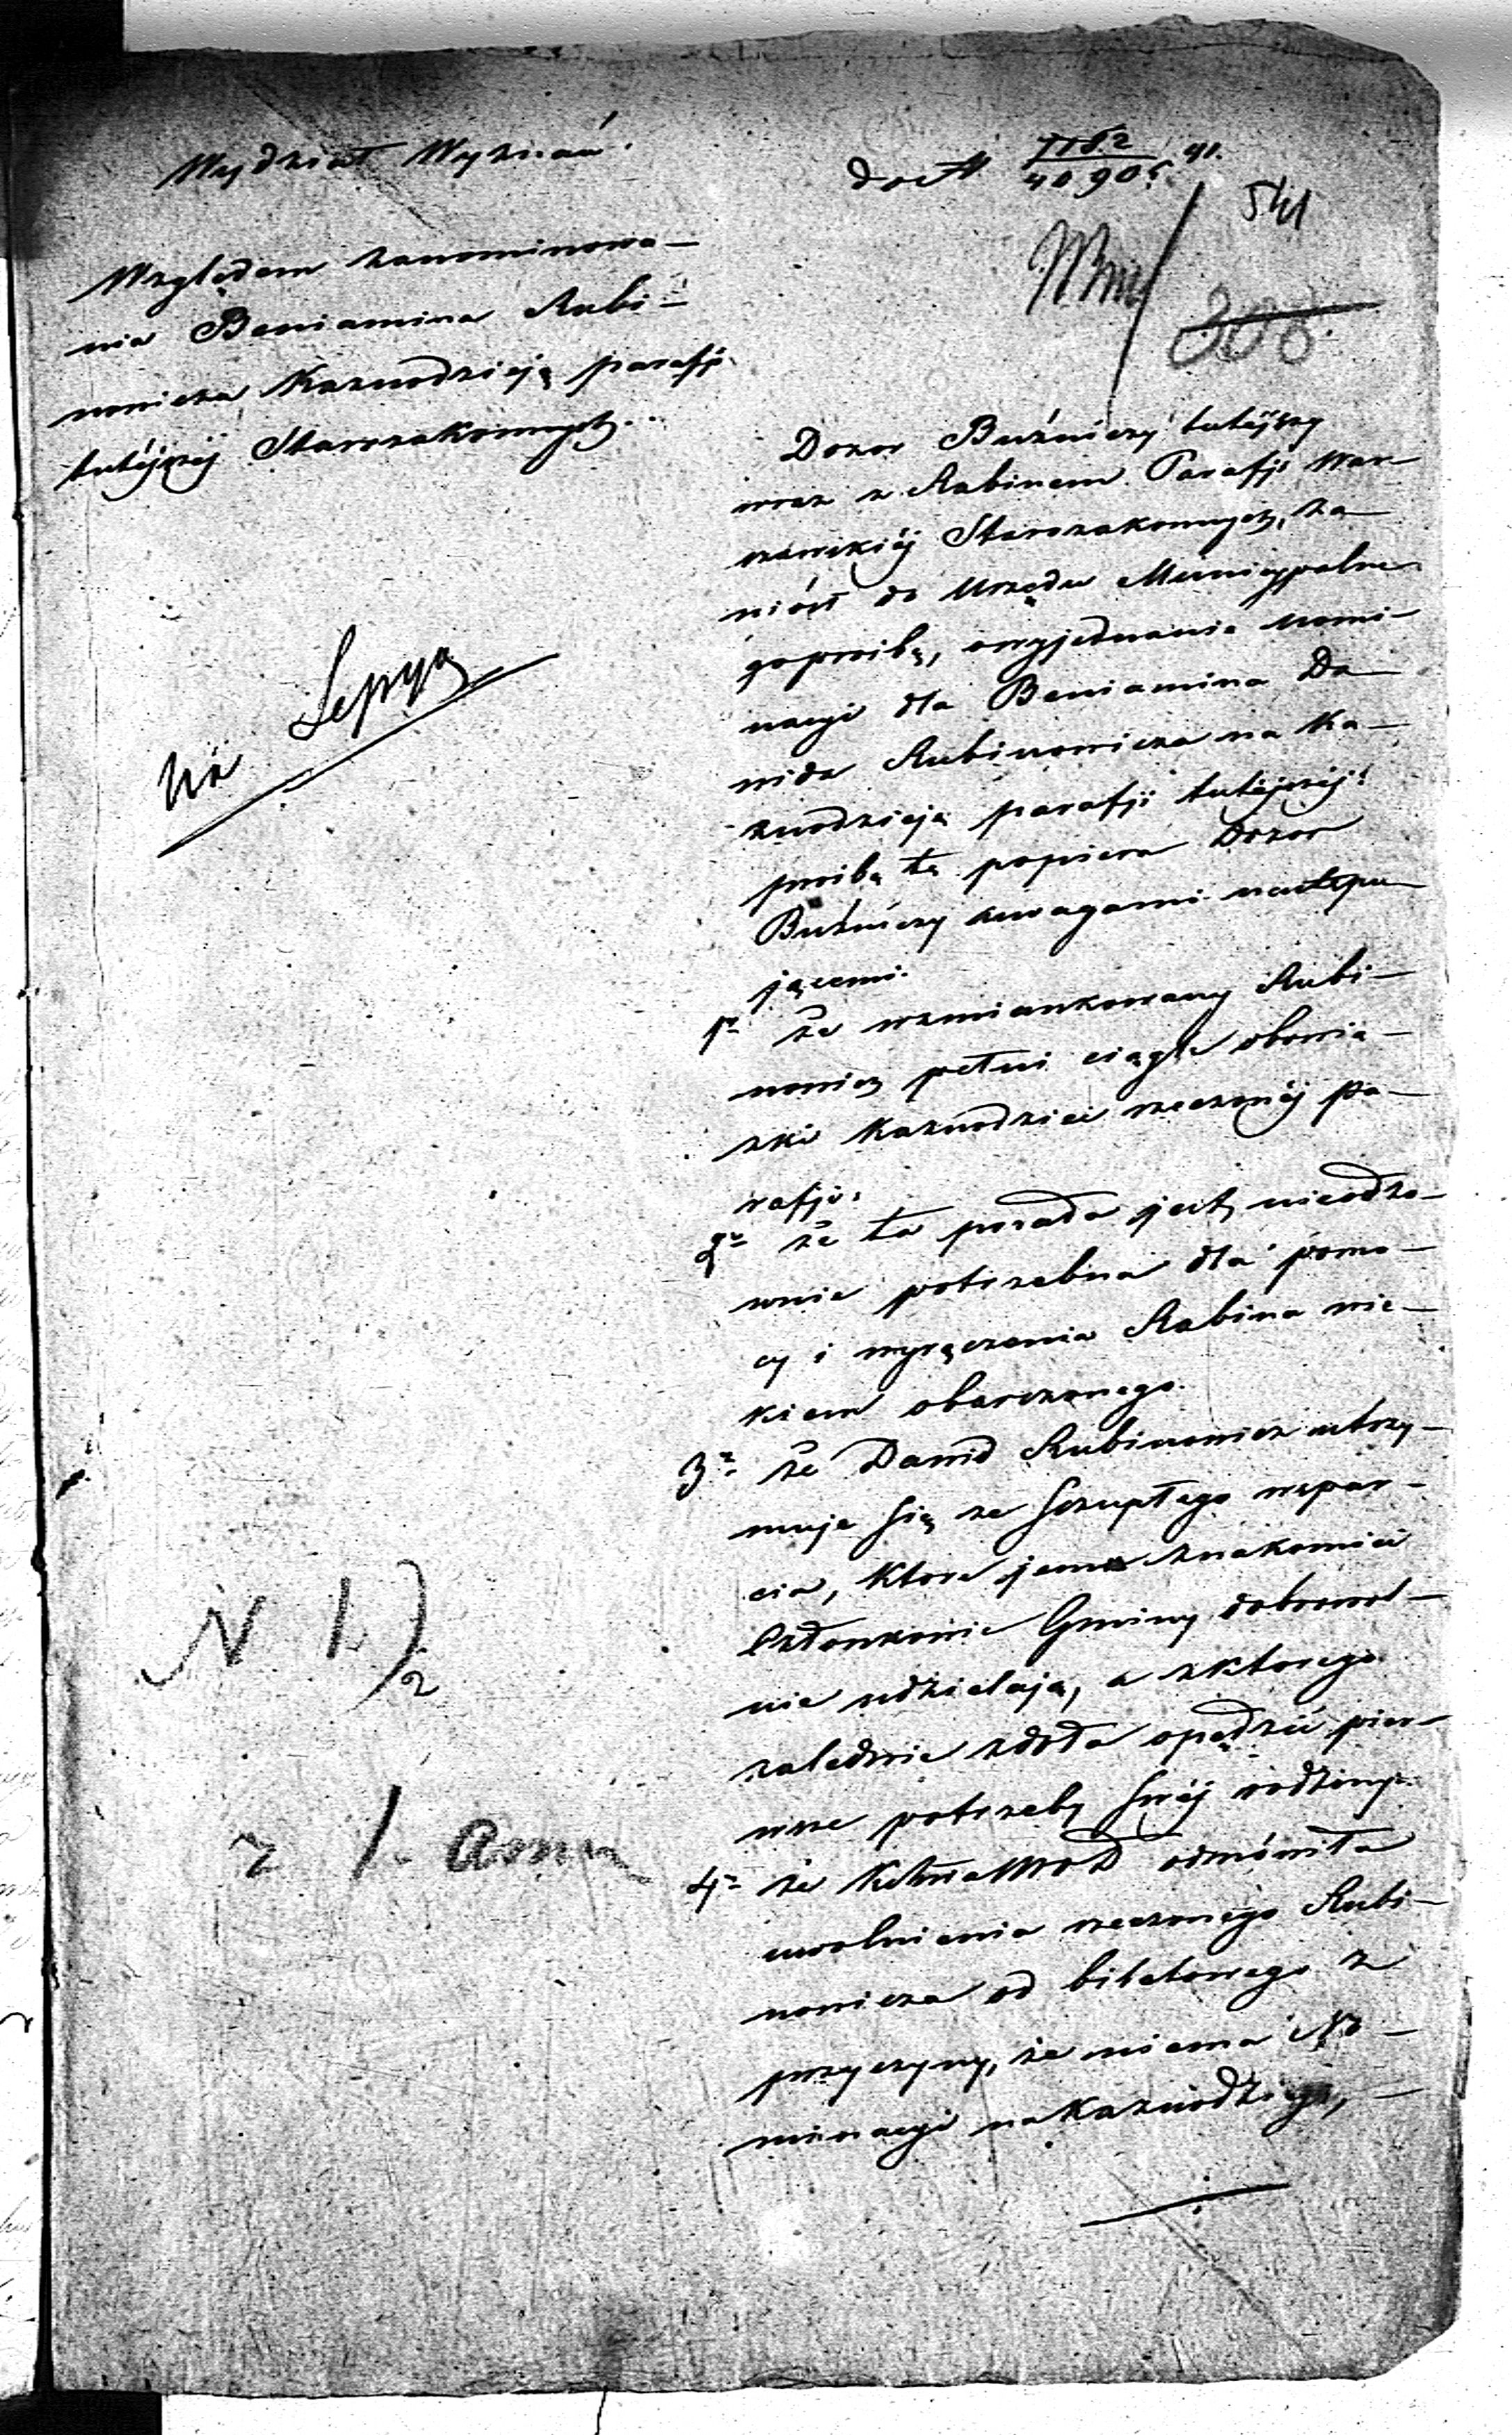 Wydział Wyznań.
do N 7162/40905 41.
541
308.
Względem zanominowa-
nia Beniamina Rubi-
nowicza Kaznodzieją parafji
tutéjszéj Starozakonnych.
Dozor Bużniczy tutéjszy
wraz z Rabinem Parafji War-
szawskiéj Starozakonnych, za-
niósł do Urzędu Municypalne-
go prośbę, o wyjednanie nomi-
nacyi dla Beniamina Da-
wida Rubinowicza na Ka-
znodzieję parafji tutéjszéj;
prośbę tę popiera Dozor
Bużniczy uwagami nastepu-
jącemi.
1° że wzmiankowany Rubi-
nowicz pełni ciągle obowią-
zki Kaznodziei rzeczonéj pa-
rafji.
2° że ta posada jest nieodzo-
wnie potrzebna dla pomo-
cy i wyręczenia Rabina wie-
kiem obarczonego.
3° że Dawid Rubinowicz utrzy-
muje się ze szczupłego wspar-
cia, które jemu znakomici
Członkowie Gminy dobrowol-
nie udzielają, a z ktorego
zaledwie zdoła opędzić pier-
wsze potrzeby swéj rodziny.
4° że odmówiła
uwolnienia rzeczonego Rubi-
nowicza od biletowego z
przyczyny, że niema No-
minacyi na Kaznodzieję,
Na Sepyą
N 1.)
2